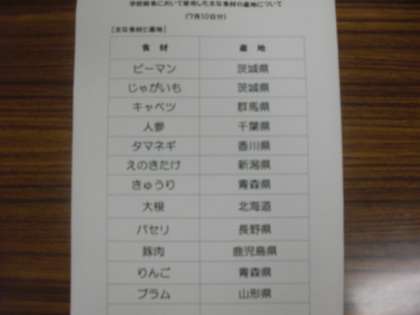 学校給食において使用した主な食材の産地について
(7月10日分)
[主な食材と産地]
食 材 産 地
ピーマン 茨城県
じゃがいも 茨城県
キャベツ 群馬県
人参 千葉県
タマネギ 香川県
えのきたけ 新潟県
きゅうり 青森県
大根 北海道
パセリ 長野県
豚肉 鹿児島県
りんご 青森県
プラム 山形県